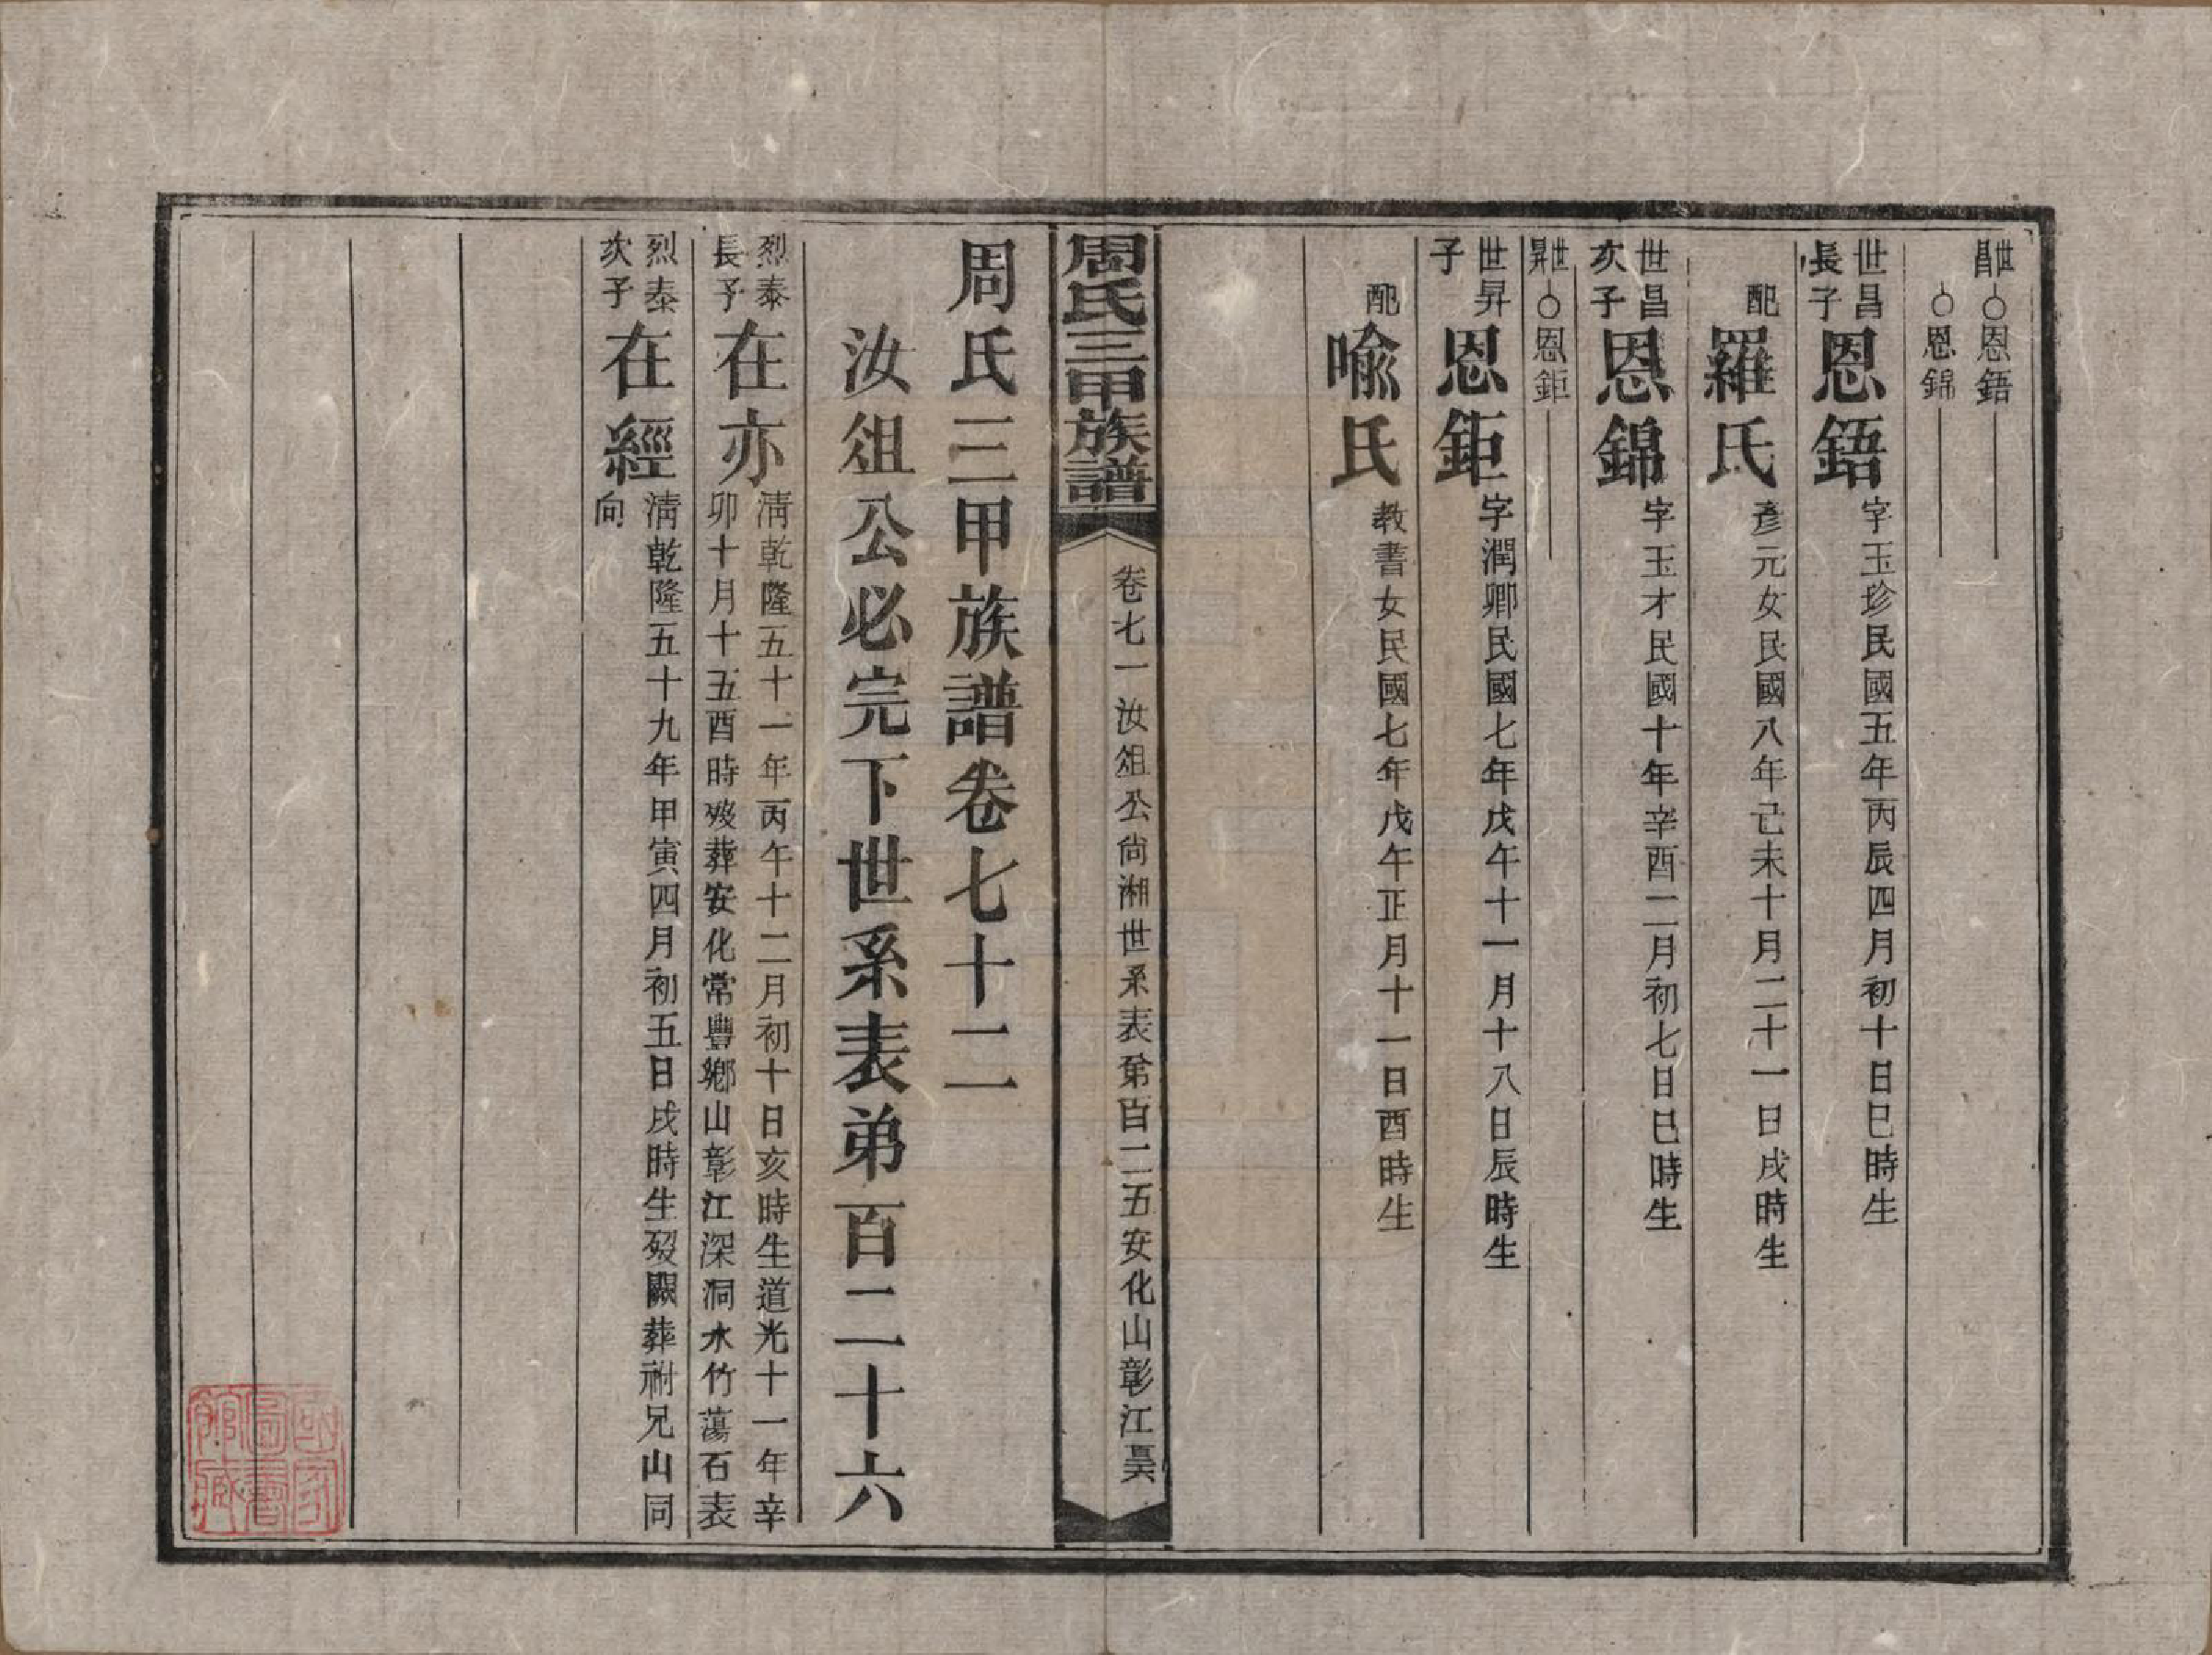 世昌○恩鋙
○恩錦
世昌長子恩鋙字玉珍民國五年丙辰四月初十日巳時生
配羅氏彥元女民國八年己未十月二十一日戌時生
世昌次子恩錦字玉才民國十年辛酉二月初七日巳時生
世昇○恩鉅
世昇子恩鉅字潤卿民國七年戊午十一月十八日辰時生
配喩氏教書女民國七年戊午正月十一日酉時生
周氏三甲族譜
卷七一汝俎公尙湘世系表第百二五安化山彰江昊
周氏三甲族譜卷七十二
汝俎公必完下世系表弟百二十六
烈泰長子在亦淸乾隆五十一年丙午十二月初十日亥時生道光十一年辛
卯十月十五酉時歿葬安化常豐鄉山彰江深洞水竹蕩石表
烈泰次子在經淸乾隆五十九年甲寅四月初五日戌時生歿闕葬祔兄山同
向
國家圖書館藏